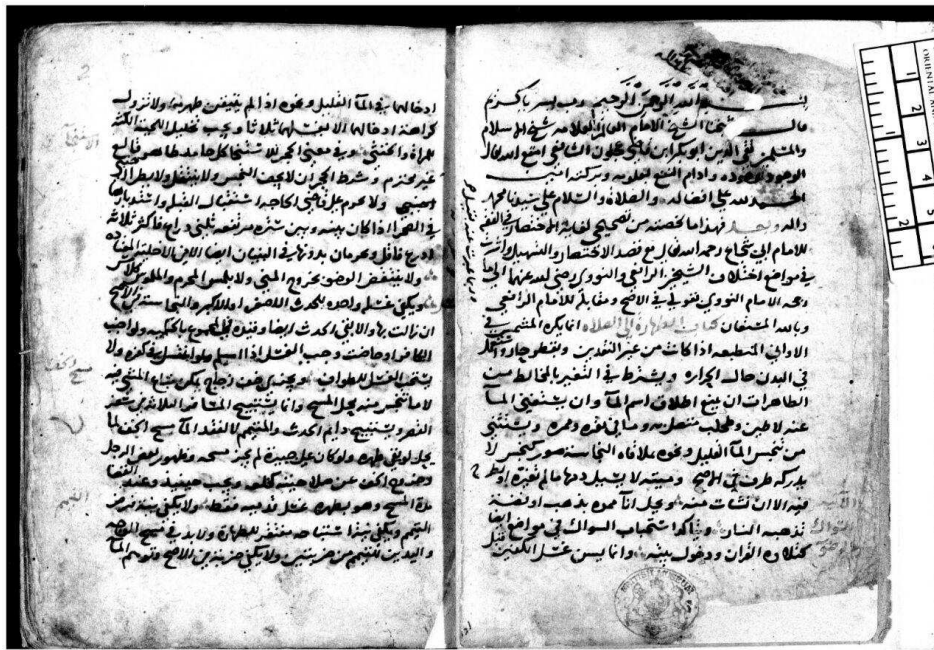 بسم الله الرحمن الرحيم رب يسر يا كريم
قال شيخنا الشيخ الامام العالم العلامه شيخ الاسلام
والمسلمين تقي الدين ابو بكر ابن قاضي عجلون الشافعي امتع الله تعالى
الوجود بوجوده وادام النفع بعلومه وبركته امين
الحمد لله على افضاله والصلاة والسلام على سيدنا محمد
واله وبعد فهذا ما لخصته من تصحيحي لغاية الاختصار في الفقه
للامام ابي شجاع رحمه الله تعالى مع قصد الاختصار والتسهيل واشرت
في مواضع اختلاف الشيخين الرافعي والنووي رضي الله عنهما الى ما
رجحه الامام النووي بقولي في الاصح ومقابله للامام الرافعي
وبالله المستعان كتاب الطهارة الى الصلاه انما يكره المشمس في
الاواني المنطبعه اذا كانت من غير النقدين وبقطر حار وتستعمل
في البدن حال الحراره ويشترط في التغير بالمخالط من
الطاهرات ان يمنع اطلاق اسم الماء وان يستغني الماء
عنه لا طين وطحلب متصل به وما في مقره وممره ويستثنى
من تنجس الماء القليل ونحوه بملاقاه النجاسة صور كنجس لا
يدركه طرف في الاصح وميتة لا يسيل دمها ما لم تغيره او تطرح
فيه الا ان نشات منه ويحل اناء مموه بذهب او فضة
تذهبه النار ويتاكد استحباب السواك في مواضع ايضا
كتلاوة القران ودخول بيته وانما يسن غسل الكفين قبل
ادخالهما في الماء القليل ونحوه اذا لم يتيقن طهرهما ولا تزول
كراهة ادخالهما الا بغسلهما ثلاثا ويجب تخليل اللحية الكثة
للمراة والخنثى وفي معنى الحجر للاستنجا كل جامد طاهر قالع
غير محترم وشرط الحجر ان لا يجف النجس ولا ينتقل ولا يطرا
اجنبي ولا يحرم على قاضي الحاجة استقبال القبلة واستدبارها
في الصحرا اذا كان بينه وبين سترة مرتفعه ثلثي ذراع فاكثر ثلاثة
اذرع فاقل ويحرمان بدونها في البنيان ايضا
ولا ينتقض الوضو بخروج المني ولا بلمس المحرم
ويكفي غسلة واحدة للحدث الاصغر او الاكبر والنجاسة في الاصح
ان زالت بها
الكافر اذا حاضت وجب الغسل اذا اسلم ولو اغتسل في كفره ولا
يستحب الغسل للطواف ويجزي خف زجاج يمكن تتابع المشي فيه
لا ما تنجس منه محل المسح وانما يستبيح المسافر الثلاث في سفر
القصر ويستبيح دايم الحدث والمتيمم لا لفقد الماء مسح الخف لما
يحل لو بقي طهره ولو كان على جبيرة لم يجز مسحه وظهور بعض الرجل
وخروج الخف عن صلاحيته كالخلع ويجب حينئذ وعند انقضا
مدة المسح وهو بطهره غسل قدميه فقط ولا يكفي نية فرض
التيمم ويكفي نية استباحة مفتقر لطهارة ولا بد في مسح الوجه
واليدين للتيمم من ضربتين ولا يكفي ضربة في الاصح وتوهم الماء
مسح الخف
التيمم
الانية
السواك